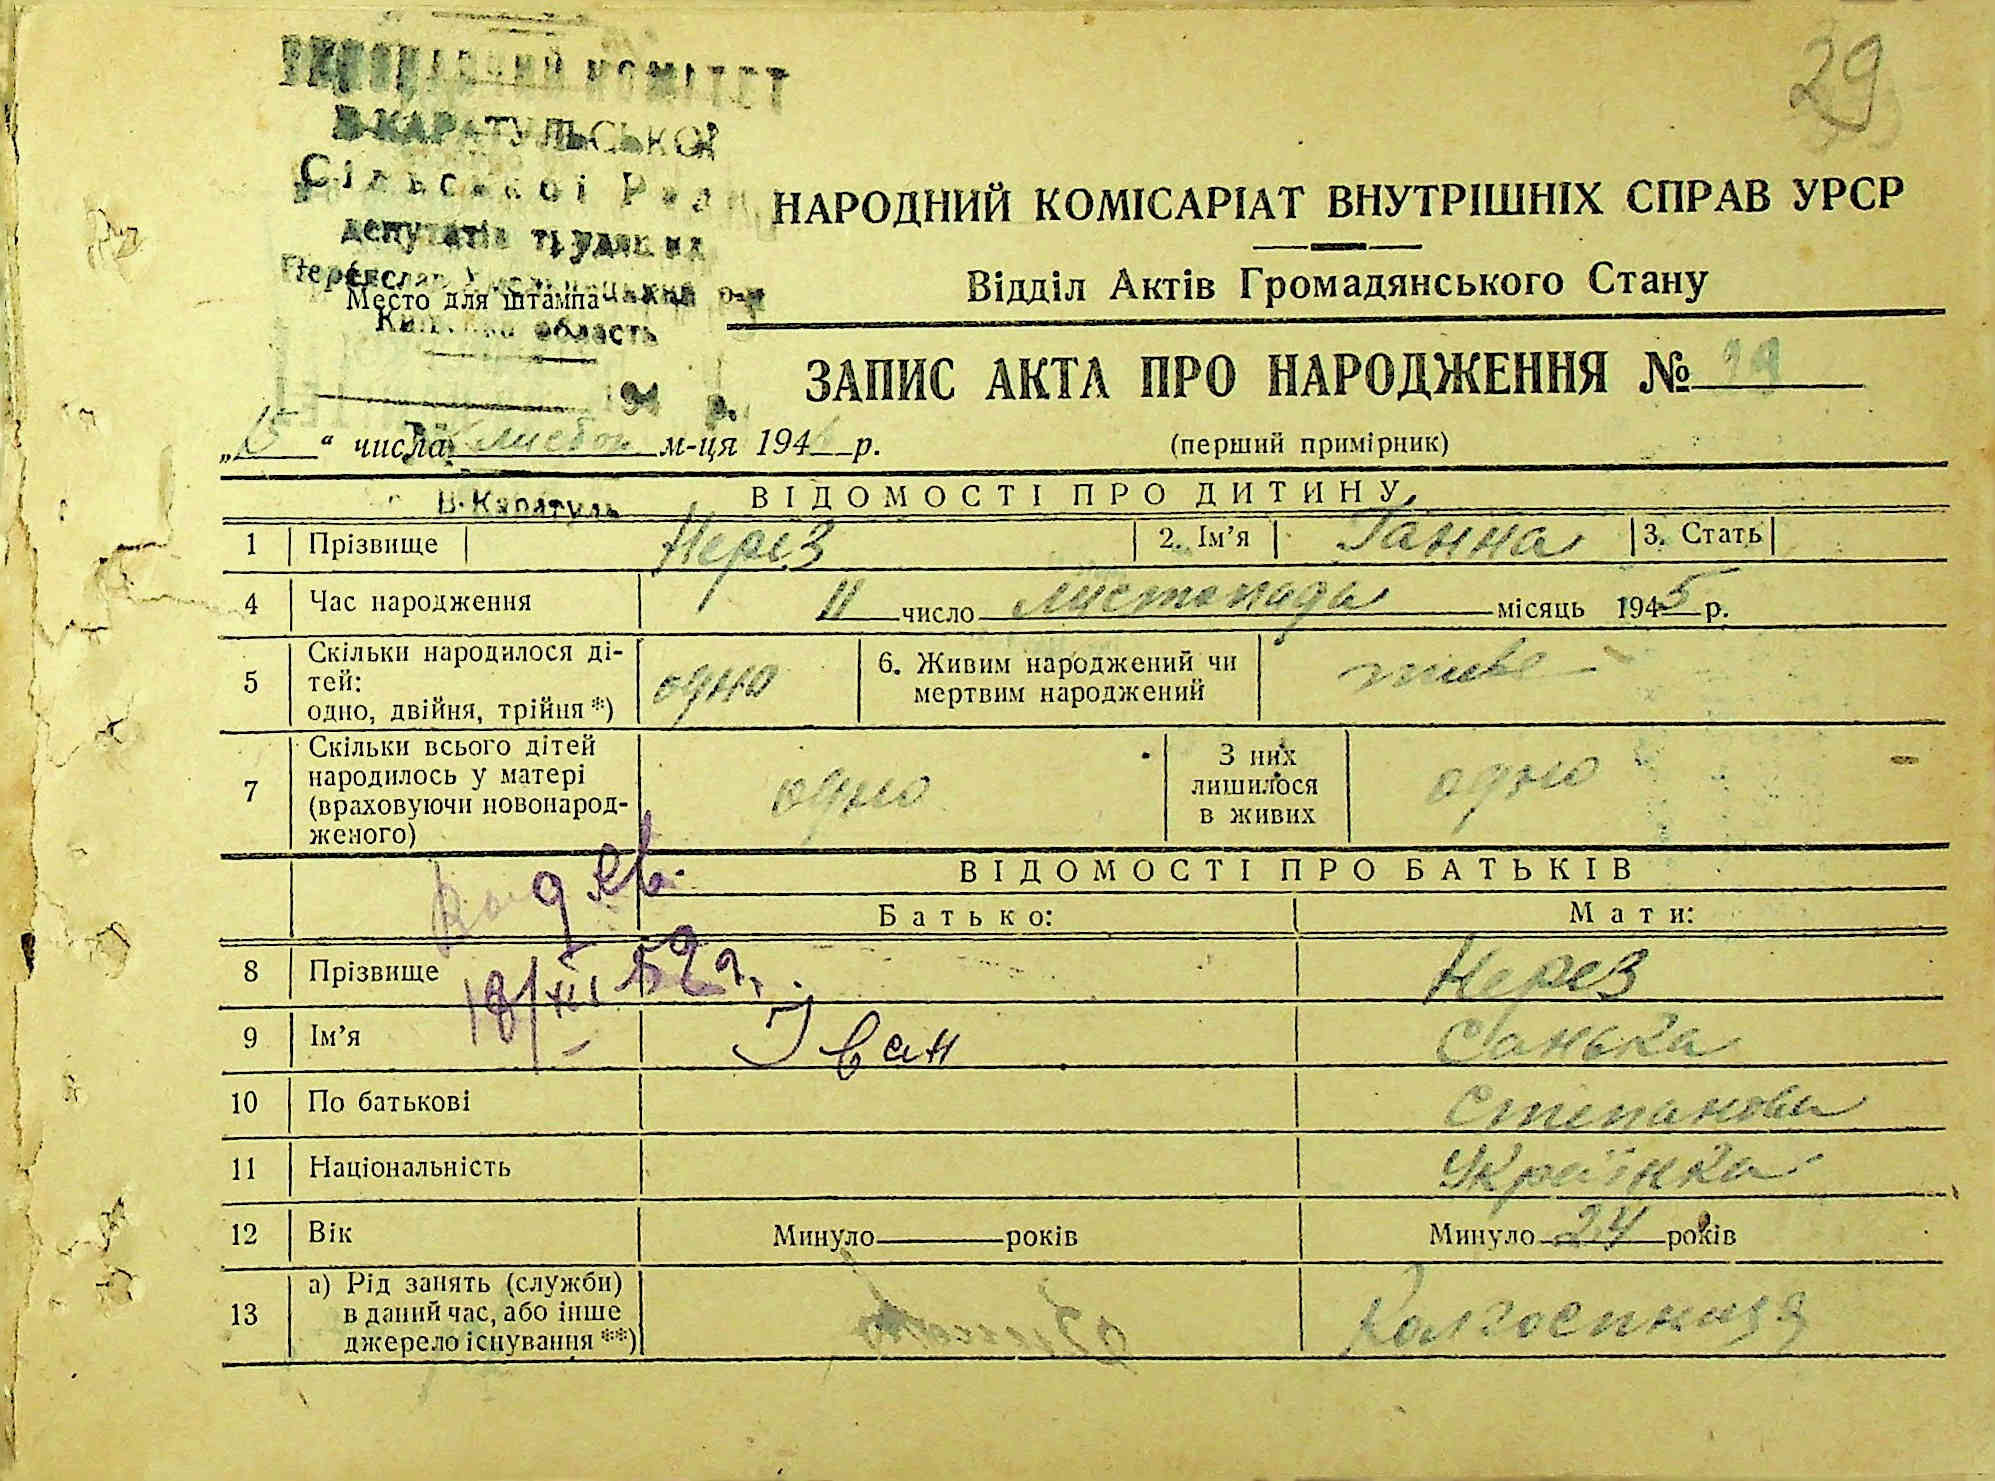 29
ВИКОНАВЧИЙ КОМІТЕТ
В-КАРАТУЛЬСЬКОЇ
Сільської Ради
депутатів трудящих
Место для штампа
область
НАРОДНИЙ КОМІСАРІАТ ВНУТРІШНІХ СПРАВ УРСР
Відділ Актів Громадянського Стану
ЗАПИС АКТА ПРО НАРОДЖЕННЯ № 29
(перший примірник)
„15“ числа листоп м-ця 194 р.
В-Каратуль
ВІДОМОСТІ ПРО ДИТИНУ
1 Прізвище Нерез 2. Ім’я Ганна 3. Стать
4 Час народження 11 число листопада місяць 1945 р.
5 Скільки народилося ді-
тей:
одно, двійня, трійня *) одно 6. Живим народжений чи
мертвим народжений живе
7 Скільки всього дітей
народилось у матері
(враховуючи новонарод-
женого) одно З них
лишилося
в живих одно
ВІДОМОСТІ ПРО БАТЬКІВ
Батько: Мати:
18/XII 52 г.
8 Прізвище Нерез
9 Ім’я Іван Санька
10 По батькові Степанова
11 Національність Українка
12 Вік Минуло років Минуло 24 років
13 а) Рід занять (служби)
в даний час, або інше
джерело існування **) Колгоспниця